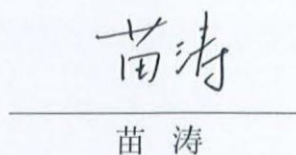 苗涛
苗 涛